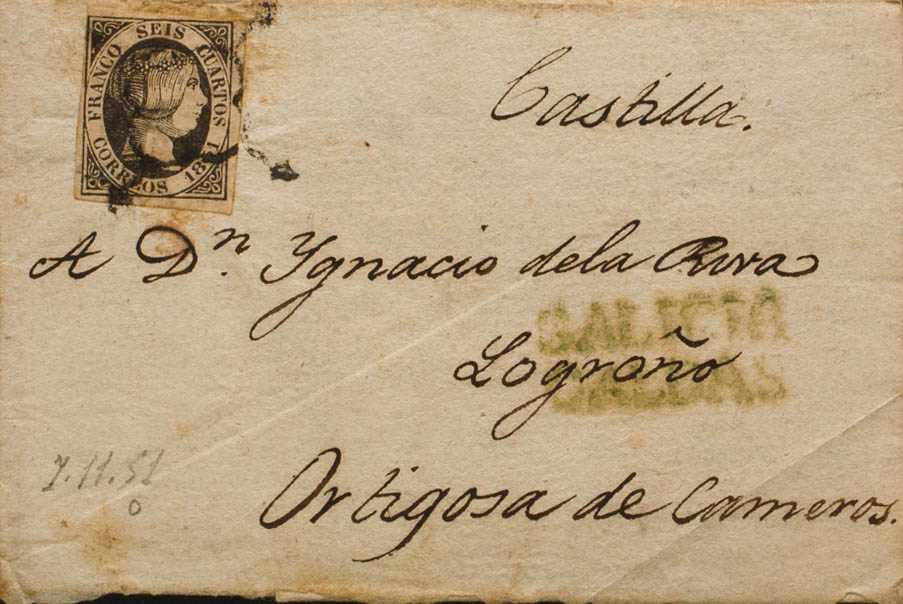 FRANCO SEIS CUARTOS
CORREOS 1851
Castilla.
A Dn. Ygnacio dela Riva
GALICIA
Logroño
7.11.51
Ortigosa de Cameros.